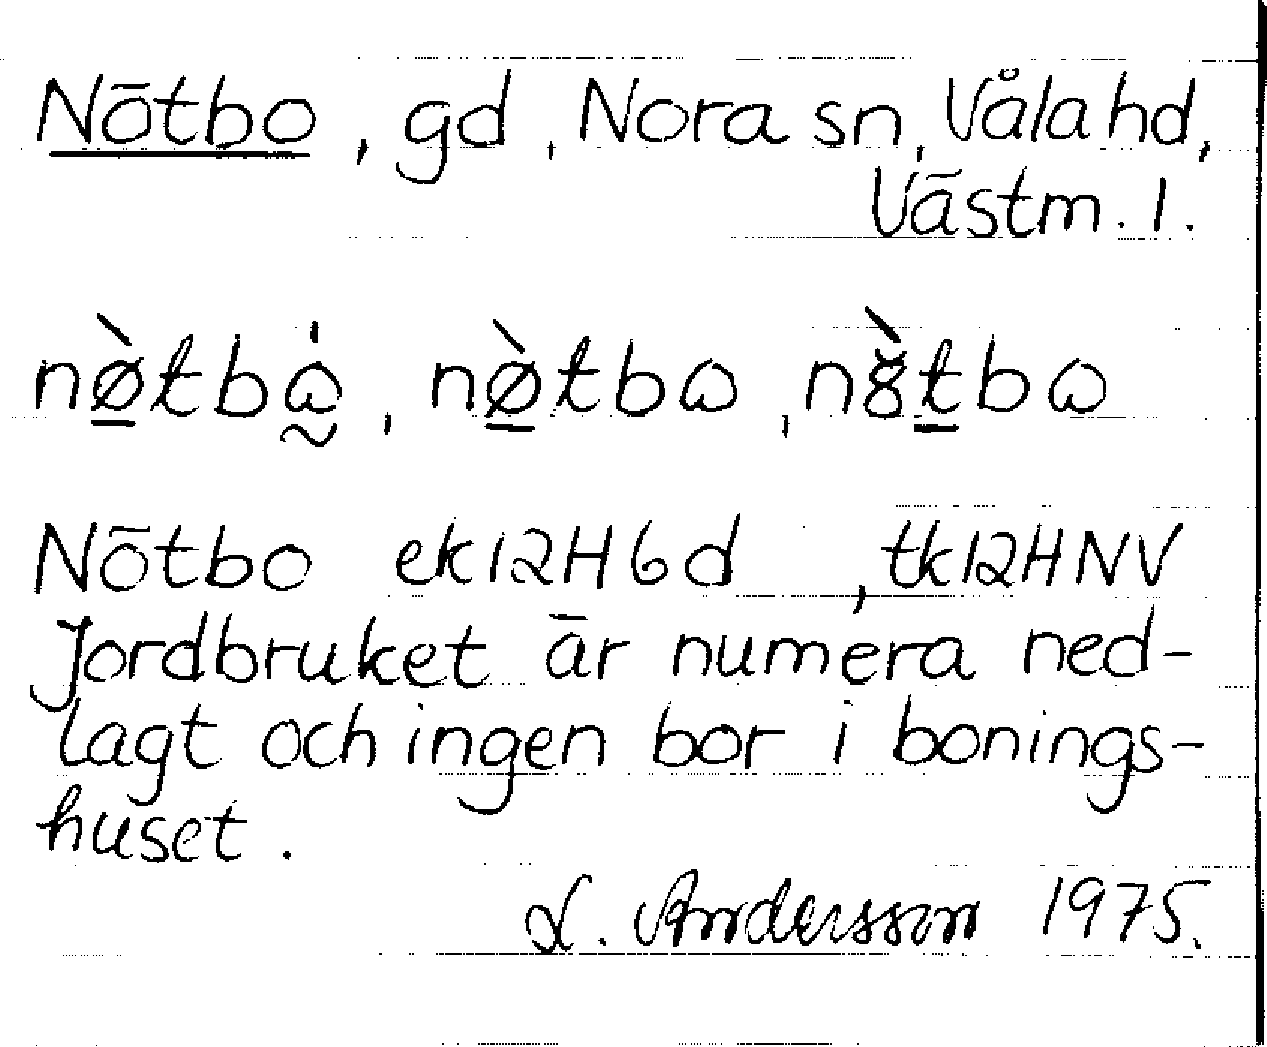 Nötbo, gd, Nora sn, Våla hd,
Västm. l.
nø̀tbɷ̀, nø̀tbɷ, n8̀tbɷ
Nötbo ek12H6d, tk12HNV
Jordbruket är numera ned-
lagt och ingen bor i bonings-
huset.
L. Andersson 1975.